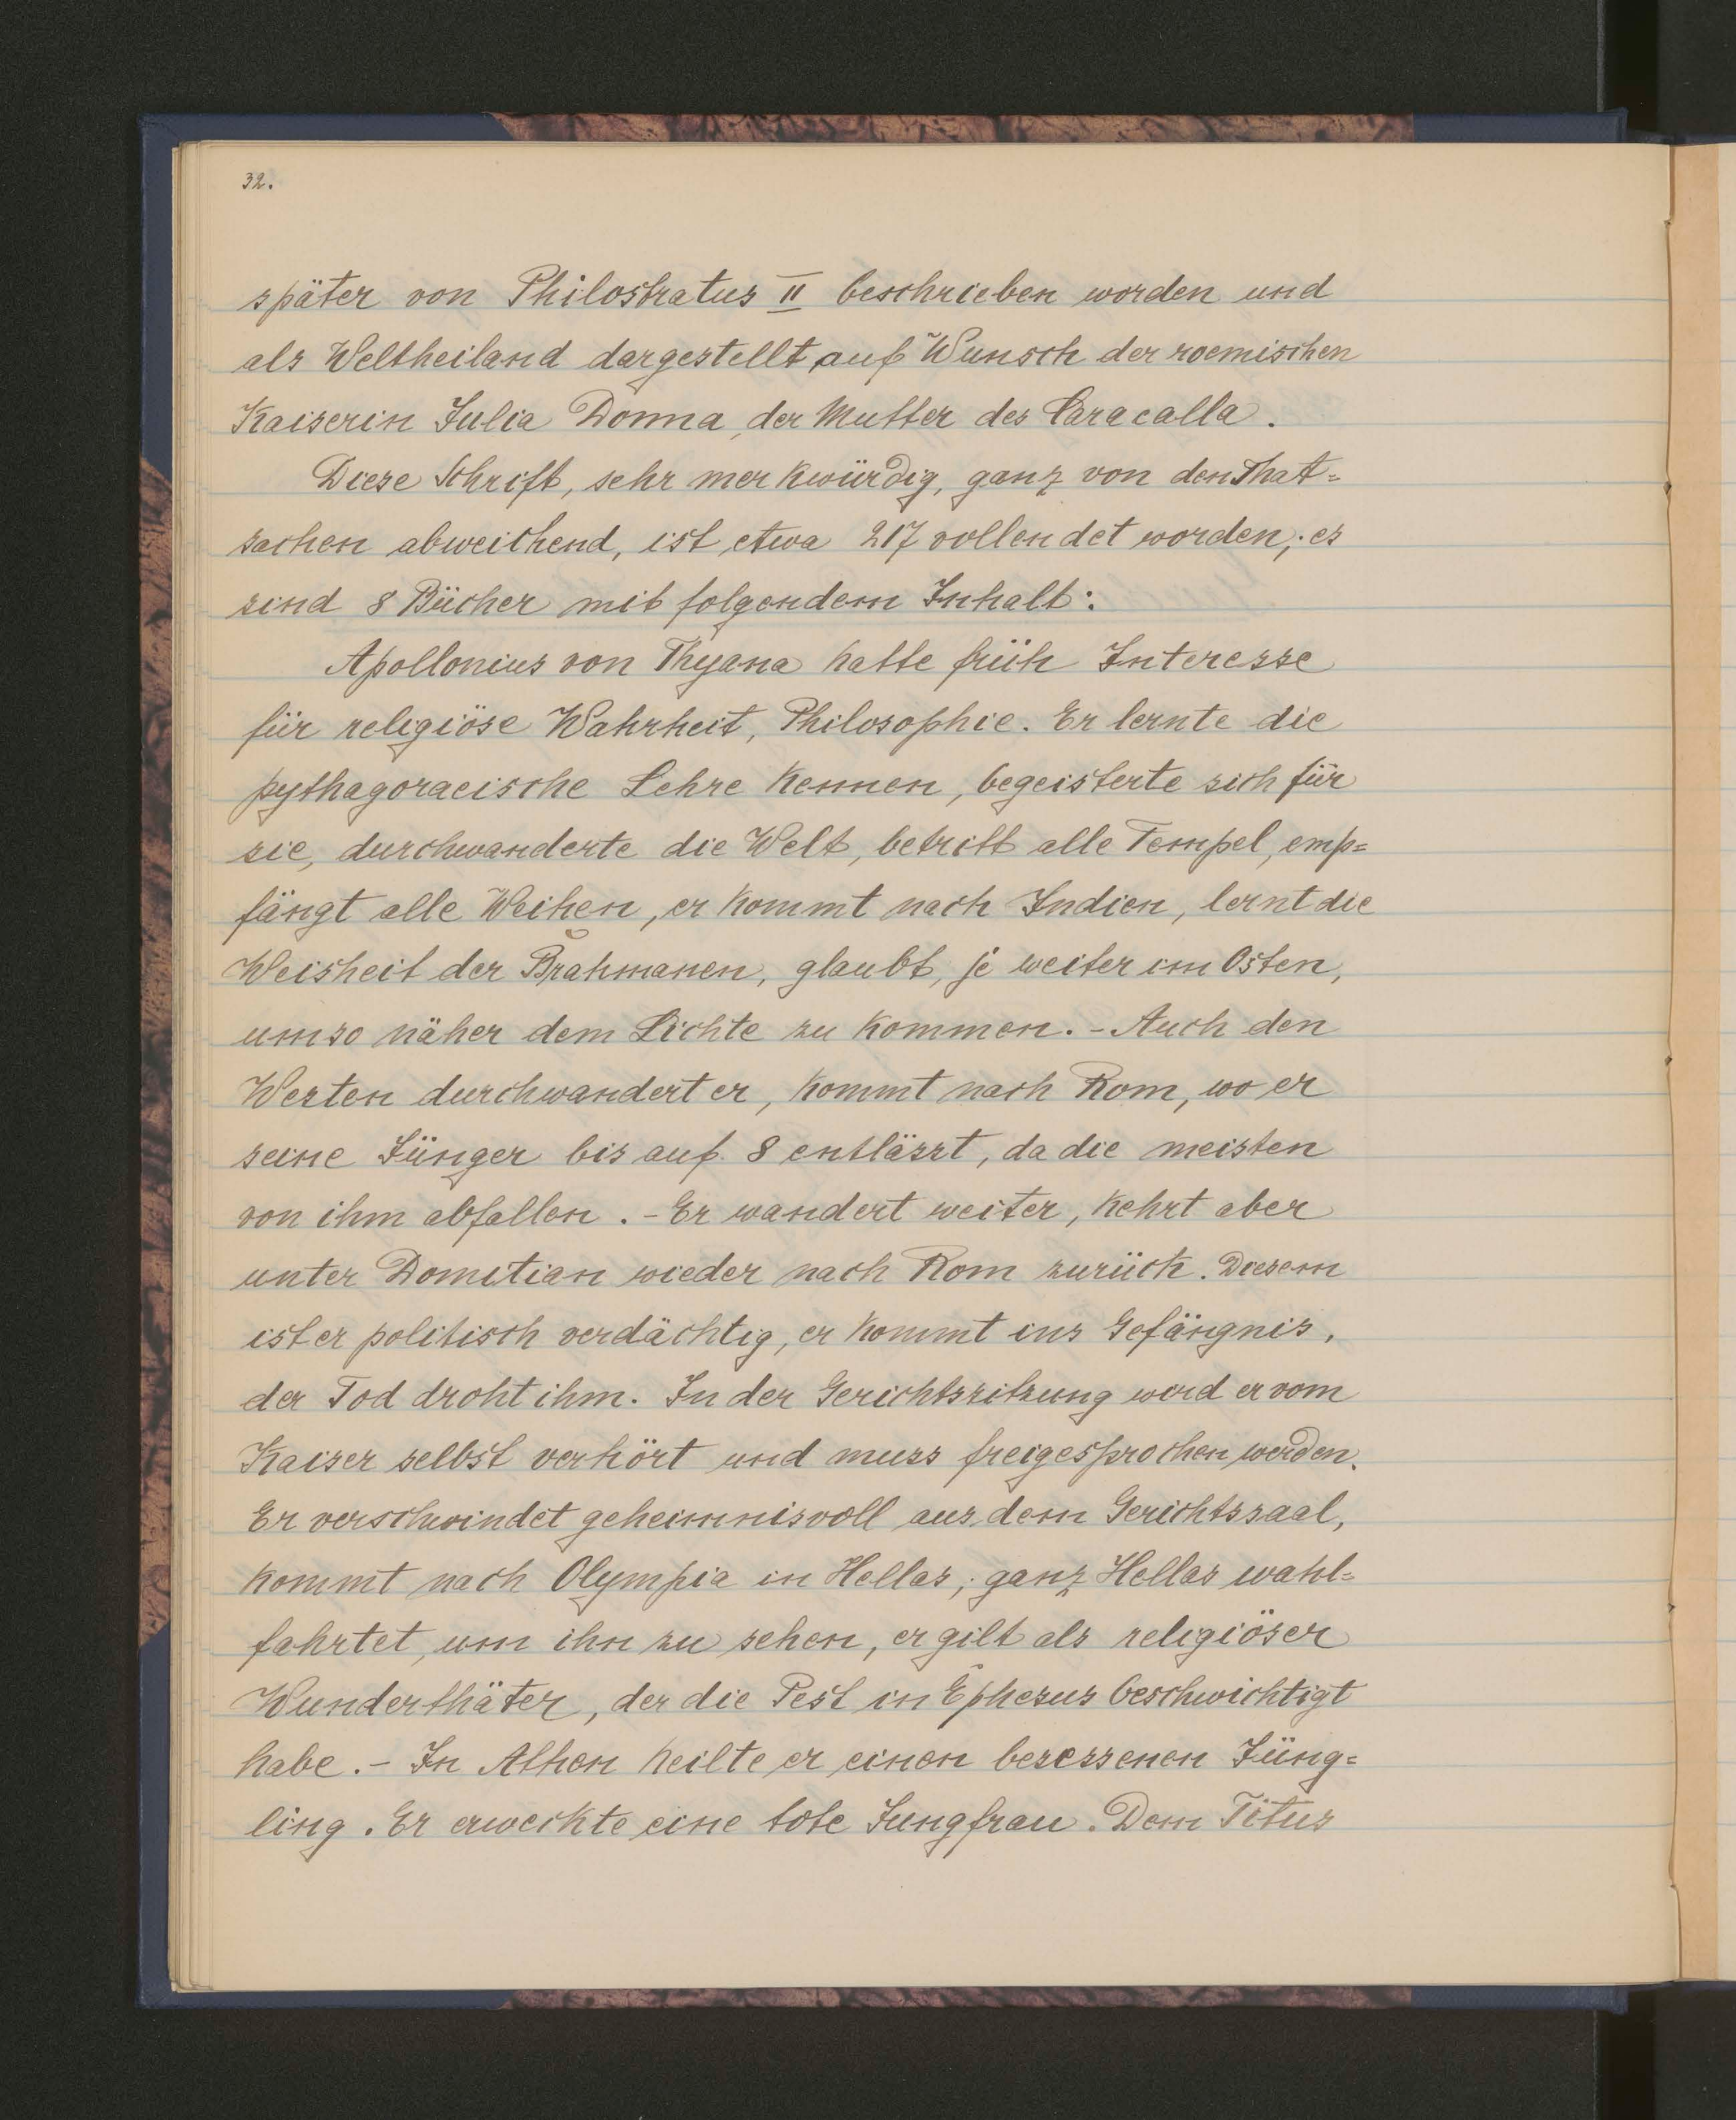 32.
später von Philostratus II beschrieben worden und
als Weltheiland dargestellt, auf Wunsch der roemischen
Kaiserin Julia Domna, der Mutter des Caracalla.
Diese Schrift, sehr merkwürdig, ganz von den That=
sachen abweichend, ist etwa 217 vollendet worden; es
sind 8 Bücher mit folgendem Inhalt:
Apollonius von Thyana hatte früh Interesse
für religiöse Wahrheit, Philosophie. Er lernte die
pythagoraeische Lehre kennen, begeisterte sich für
sie, durchwanderte die Welt, betritt alle Tempel, emp=
fängt alle Weihen, er kommt nach Indien, lernt die
Weisheit der Brahmanen, glaubt, je weiter im Osten,
umso näher dem Lichte zu kommen. - Auch den
Westen durchwandert er, kommt nach Rom, wo er
seine Jünger bis auf 8 entlässt, da die meisten
von ihm abfallen. - Er wandert weiter, kehrt aber
unter Dometian wieder nach Rom zurück. Diesem
ist er politisch verdächtig, er kommt ins Gefängnis,
der Tod droht ihm. In der Gerichtssitzung wird er vom
Kaiser selbst verhört und muss freigesprochen werden.
Er verschwindet geheimnisvoll aus dem Gerichtssaal,
kommt nach Olympia in Hellas; ganz Hellas wahl=
fahrtet, um ihn zu sehen, er gilt als religiöser
Wunderthäter, der die Pest in Ephesus beschwichtigt
habe. - In Athen heilte er einen besessenen Jüng=
ling. Er erweckte eine tote Jungfrau. Dem Titus